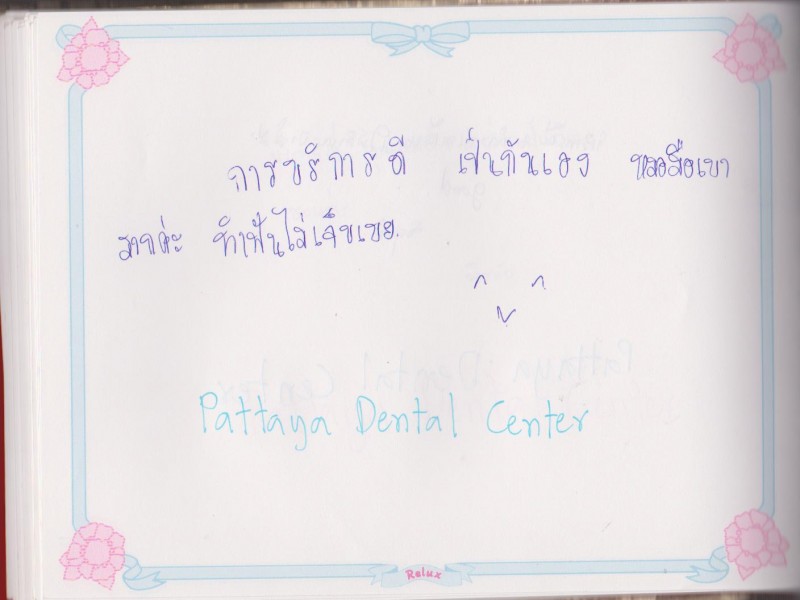 การบริการดี เป็นกันเอง หมอมือเบา
มากค่ะ ทำฟันไม่เจ็บเลย.
Pattaya Dental Center
Relux